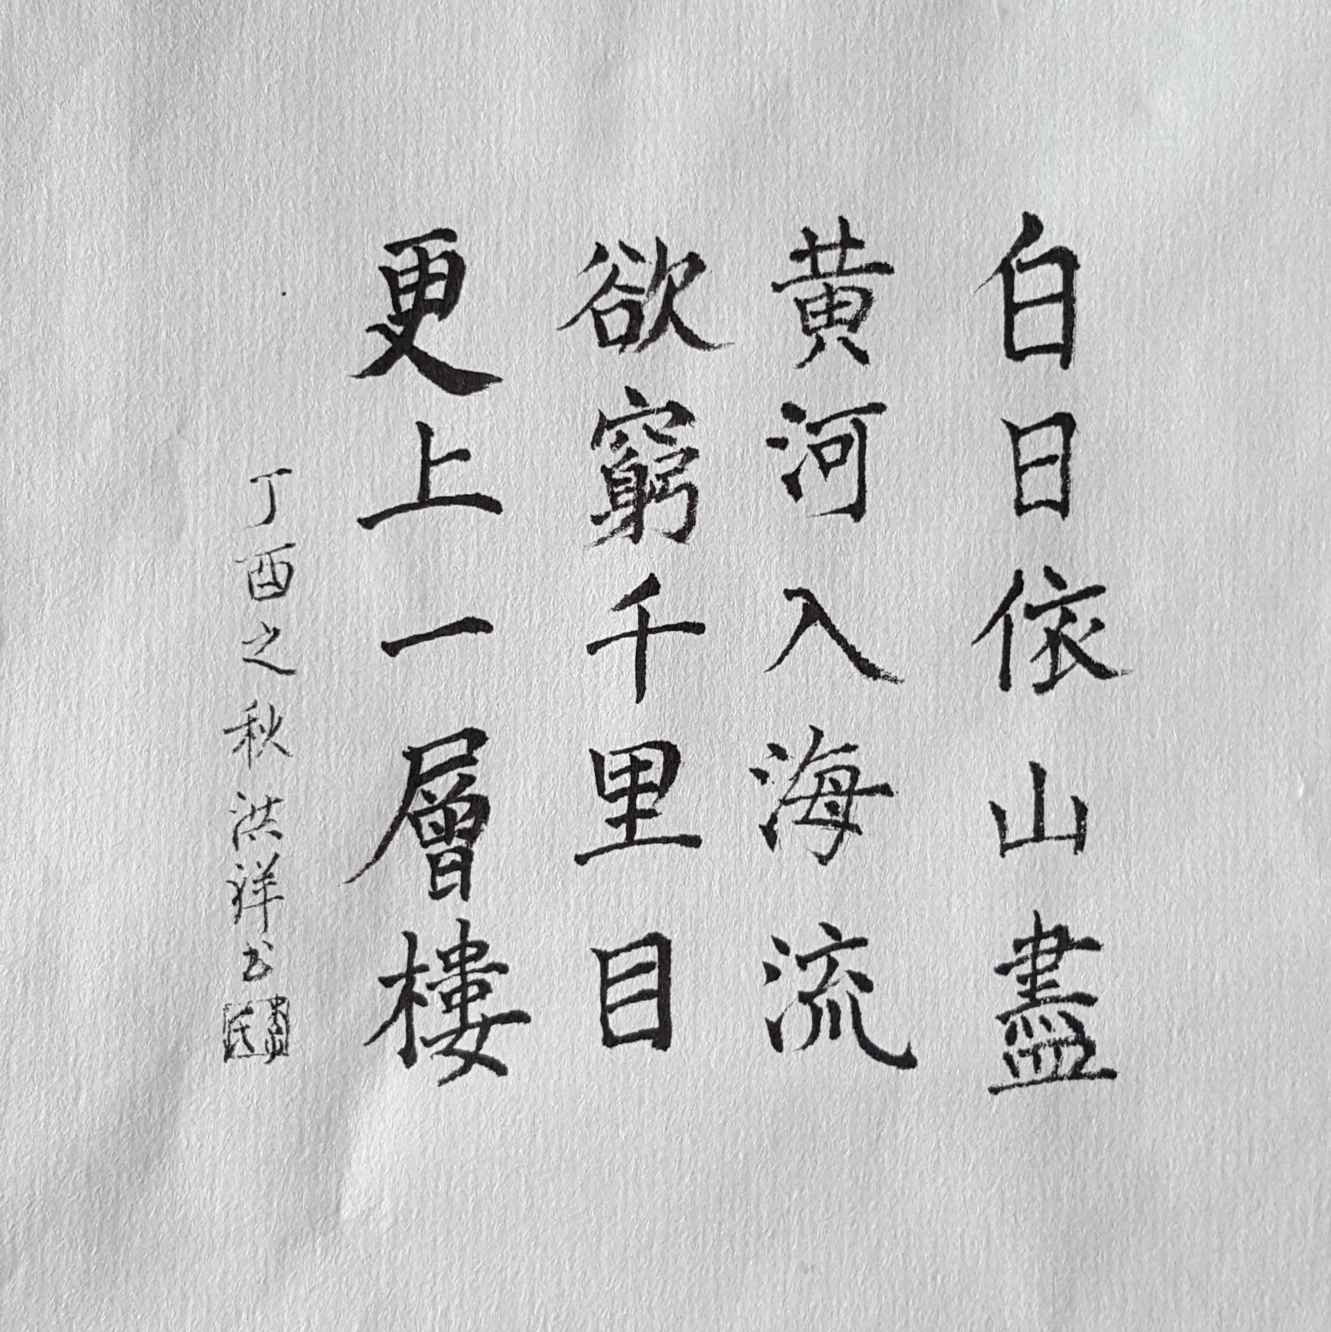 白日依山盡
黃河入海流
欲窮千里目
更上一層樓
丁酉之秋洪祥书